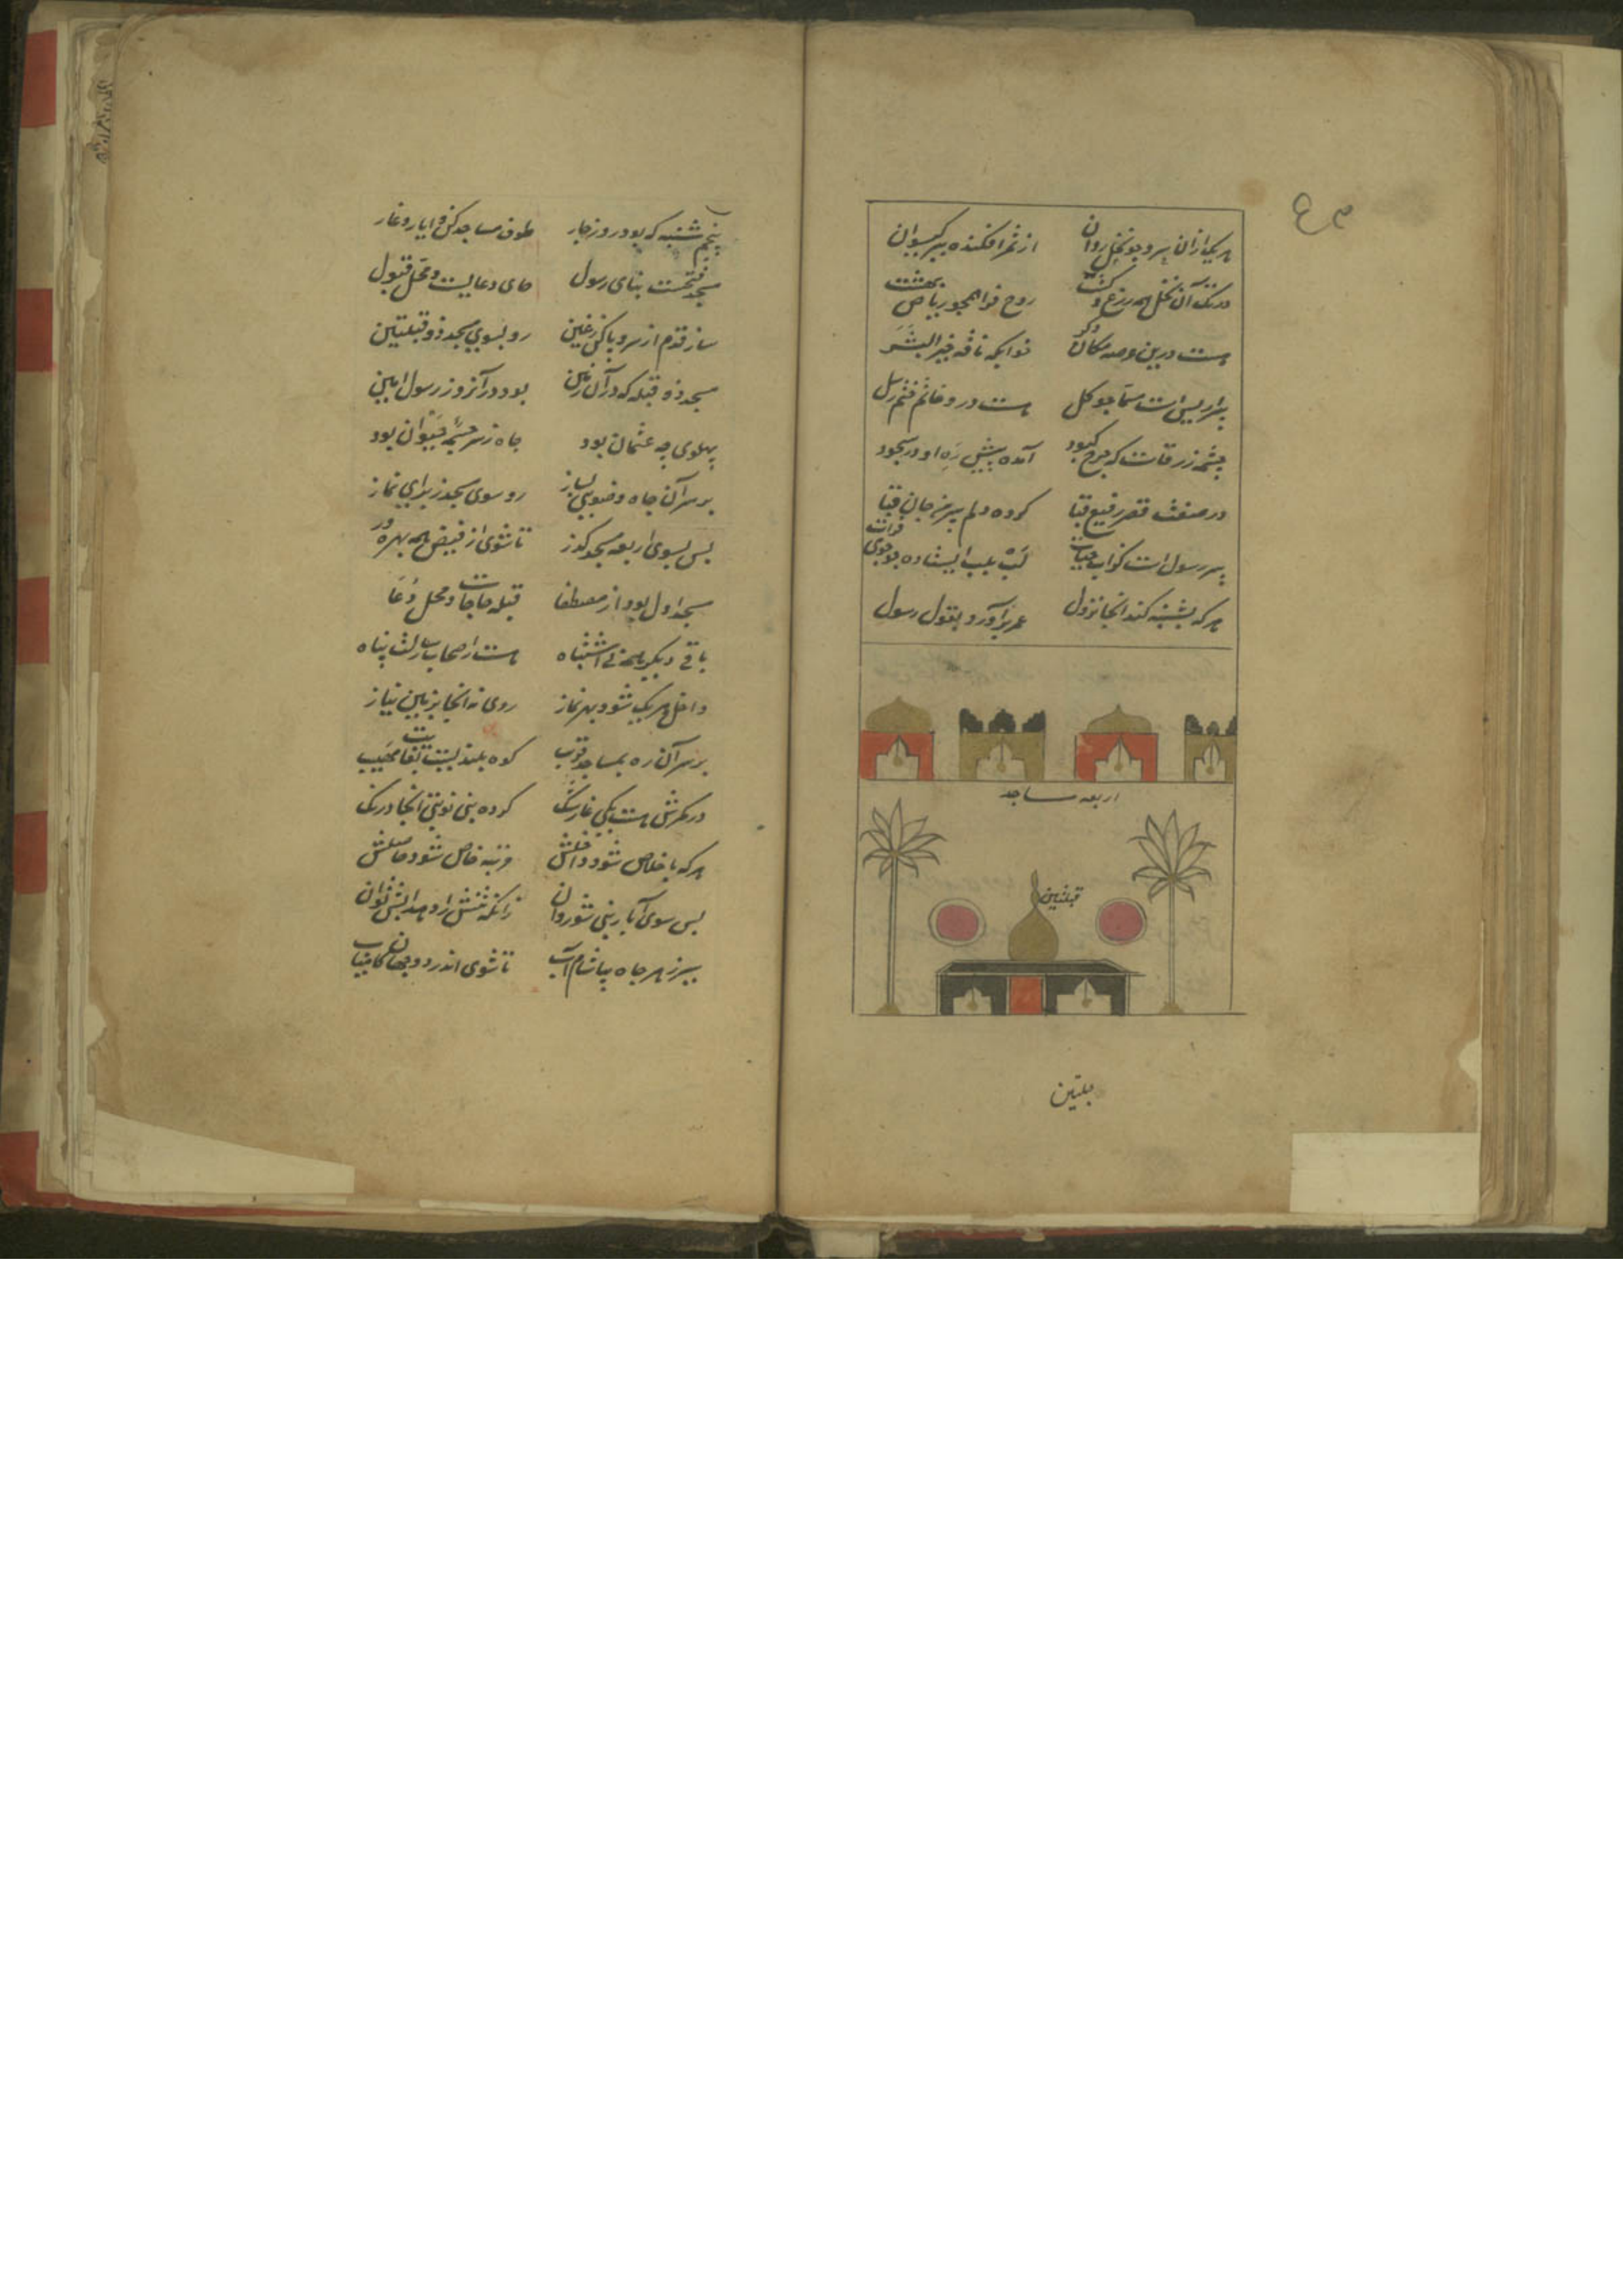 هر یک ازان سرو چو نخل روان از ثمر افکنده بسر گیسوان
در تک آن نخل همه زرع و کشت روح فزا همچو ریاض بهشت
هست درین عرصه مکان دگر خوابگه ناقه خیر البشر
بئر اریس است مسما چو گل هست درو خاتم ختم رسل
چشمه زرقاست که چرخ کبود آمده پیش ره او در سجود
در صفت قصر رفیع قبا کوده دلم پیرهن جان قبا
بیر رسول است کزاب حیات لب بلب ایستاده چو جوی فرات
هر که بشنبه کند انجا نزول عمره برآورد بقول رسول
اربعه مساجد
قبلتین
پنجم شنبه که بود روز چار طوف مساجد کن و ابیار و غار
مسجد فتحست بنای رسول جای دعایست و محل قبول
ساز قدم از سر و پا کن ز عین رو بسوی مسجد ذو قبلتین
مسجد ذو قبله که در آن زمین بود در آنروز رسول امین
پهلوی چه عثمان بود چاه ز سرچشمه حیوان بود
بر سر آن چاه وضویی بساز رو سوی مسجد ز برای نماز
پس بسوی اربعه مسجد گذر تا شوی از فیض همه بهره ور
مسجد اول بود از مصطفا قبله حاجات و محل دعا
باقی دیگر همه بی اشتباه هست ز اصحاب رسالت پناه
داخل هر یک شو و بهر نماز روی نه انجا بزمین نیاز
بر سر آن ره بمساجد قریب کوه بلندیست بغایت مهیب
در کمرش هست یکی غار تنگ کرده نبی نوبتی انجا درنگ
هر که باخلاص شود داخلش مرتبه خاص شود حاصلش
پس سوی آبار نبی شو روان
بر سر هر چاه بیاشام آب تا شوی اندر دو جهان کامیاب